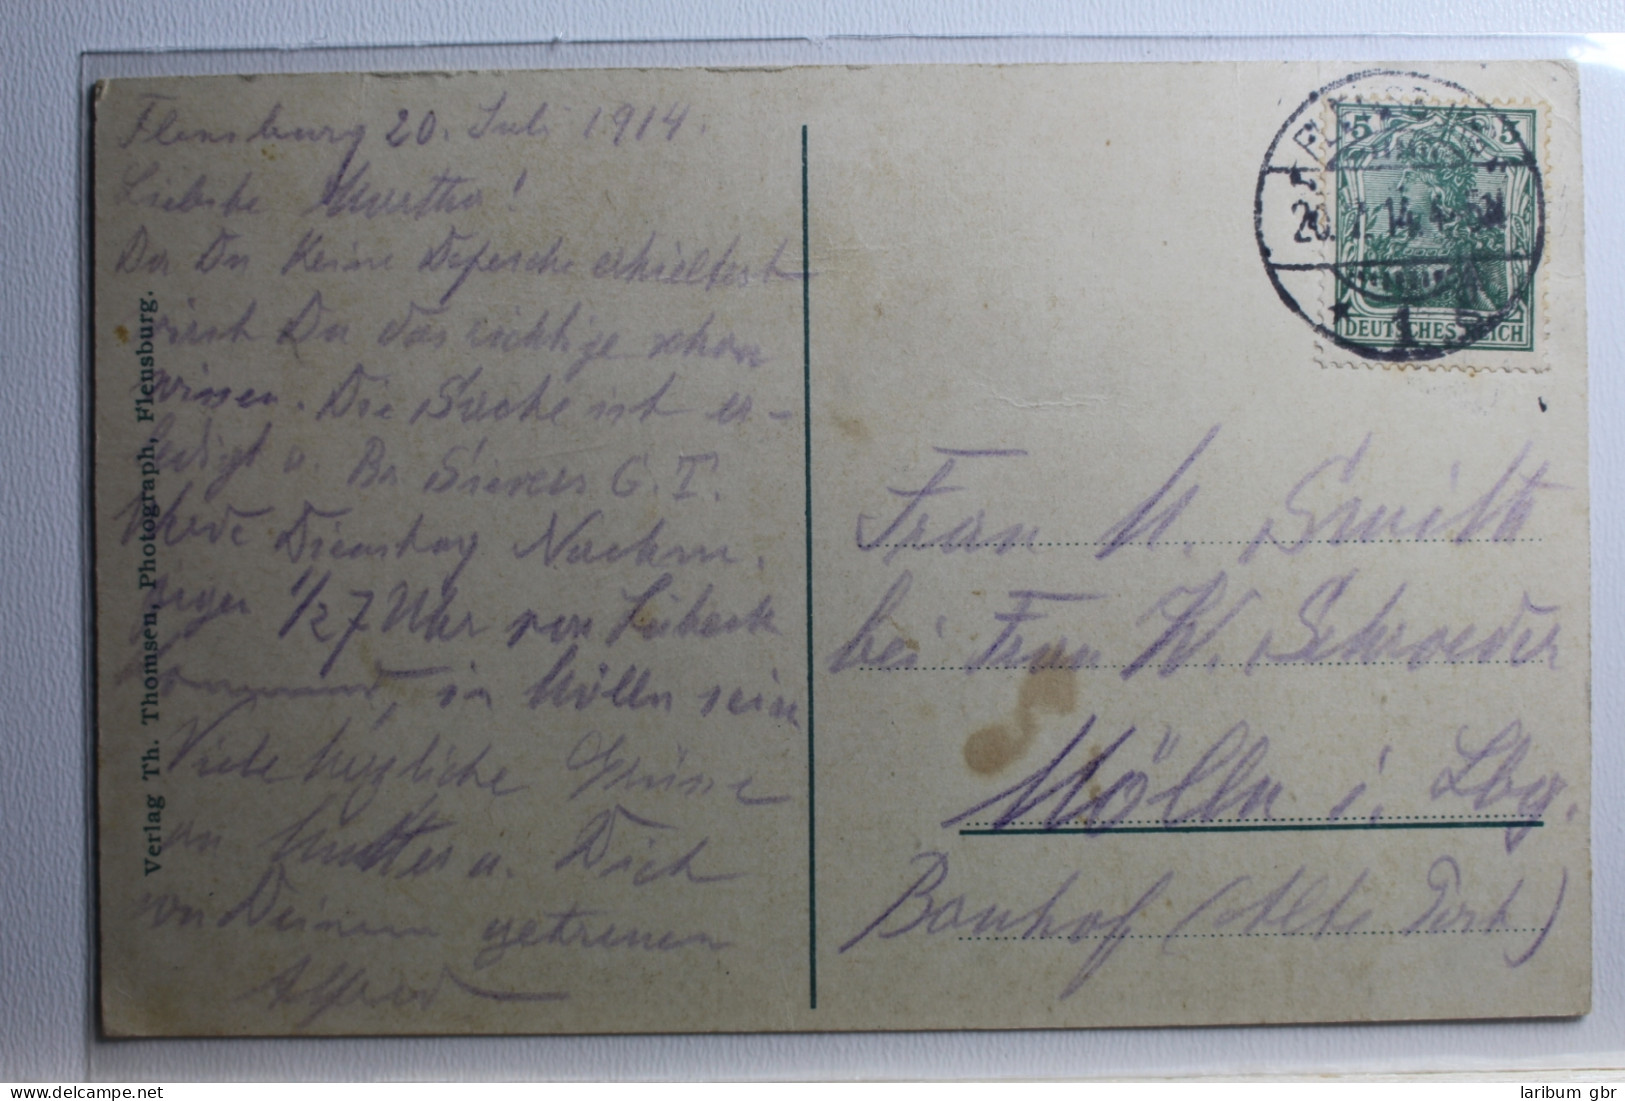 Flensburg 20. Juli 1914.
Liebste Martha!
Da Du Keine Depesche erhieltest
wirst Du das richtige schon
wissen. Die Sache ist er-
ledigt u. Br. Sievers G. T.
Werde Dienstag Nachm.
gegen 1/27 Uhr von Lübeck
kommend, in Mölln sein
Viele herzliche Grüsse
an Mutter u. Dich
von Deinem getreuen
Alfred
Verlag Th. Thomsen, Photograph, Flensburg.
FLENSBURG
20.7.14.
* 1
5 5
DEUTSCHES REICH
Frau M. Smith
bei Frau W. Schroeder
Mölln i. Lbg.
Bauhof (Alte Post)
www.delcampe.net
laribum gbr